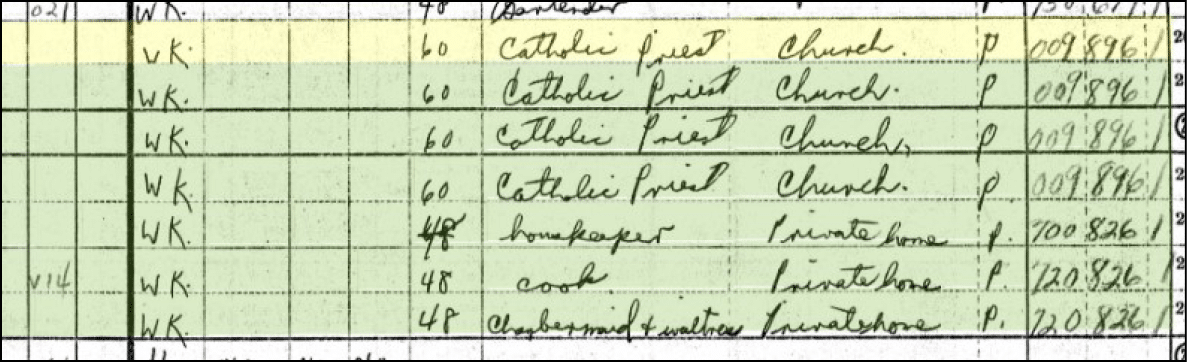 021 WK. 48 Bartender P
WK. 60 Catholic Priest Church. P 009 896 1 2
WK. 60 Catholic Priest Church. P 009 896 1 2
WK. 60 Catholic Priest Church, P 009 896 1 2
WK. 60 Catholic Priest Church. P 009 896 1 2
WK. 48 housekeeper Private home P. 700 826 1 2
V14 WK. 48 cook Private home P. 720 826 1 2
WK. 48 Chambermaid & waitress Private home P. 720 826 1 2